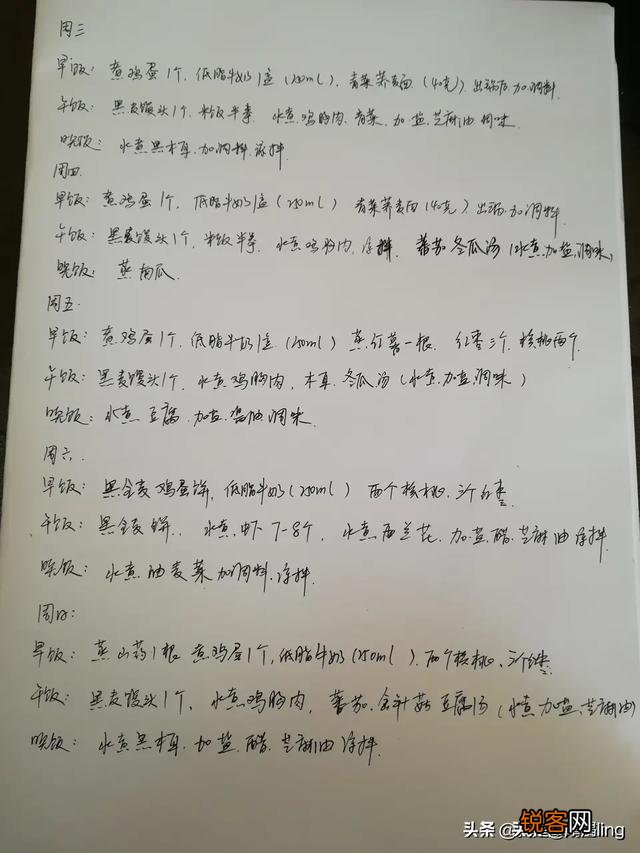 周三
早饭: 煮鸡蛋1个, 低脂牛奶1盒(250ml), 青菜荞麦面(40克), 出锅后加调料
午饭: 黑麦馒头1个, 米饭半拳 水煮鸡胸肉, 青菜, 加盐芝麻油调味
晚饭: 水煮黑木耳, 加调料凉拌
周四
早饭: 煮鸡蛋1个, 低脂牛奶1盒(250ml) 青菜荞麦面(40克), 出锅加调料
午饭: 黑麦馒头1个, 米饭半拳, 水煮鸡胸肉, 凉拌, 蕃茄冬瓜汤(水煮, 加盐, 调味)
晚饭: 蒸南瓜
周五.
早饭: 煮鸡蛋1个, 低脂牛奶1盒(250ml) 蒸红薯一根, 红枣三个, 核桃两个
午饭: 黑麦馒头1个, 水煮鸡胸肉, 木耳, 冬瓜汤(水煮, 加盐, 调味)
晚饭: 水煮豆腐, 加盐, 酱油, 调味
周六.
早饭: 黑全麦鸡蛋饼, 低脂牛奶(250ml) 两个核桃, 三个红枣
午饭: 黑全麦饼, 水煮虾7-8个, 水煮西兰花, 加盐, 醋, 芝麻油凉拌
晚饭: 水煮油麦菜加调料, 凉拌
周日:
早饭: 蒸山药1根 煮鸡蛋1个, 低脂牛奶(250ml), 两个核桃, 三个红枣
午饭: 黑麦馒头1个, 水煮鸡胸肉, 蕃茄, 金针菇豆腐汤(水煮加盐, 芝麻油)
晚饭: 水煮黑木耳, 加盐, 醋, 芝麻油凉拌
头条 @
ling
锐客网